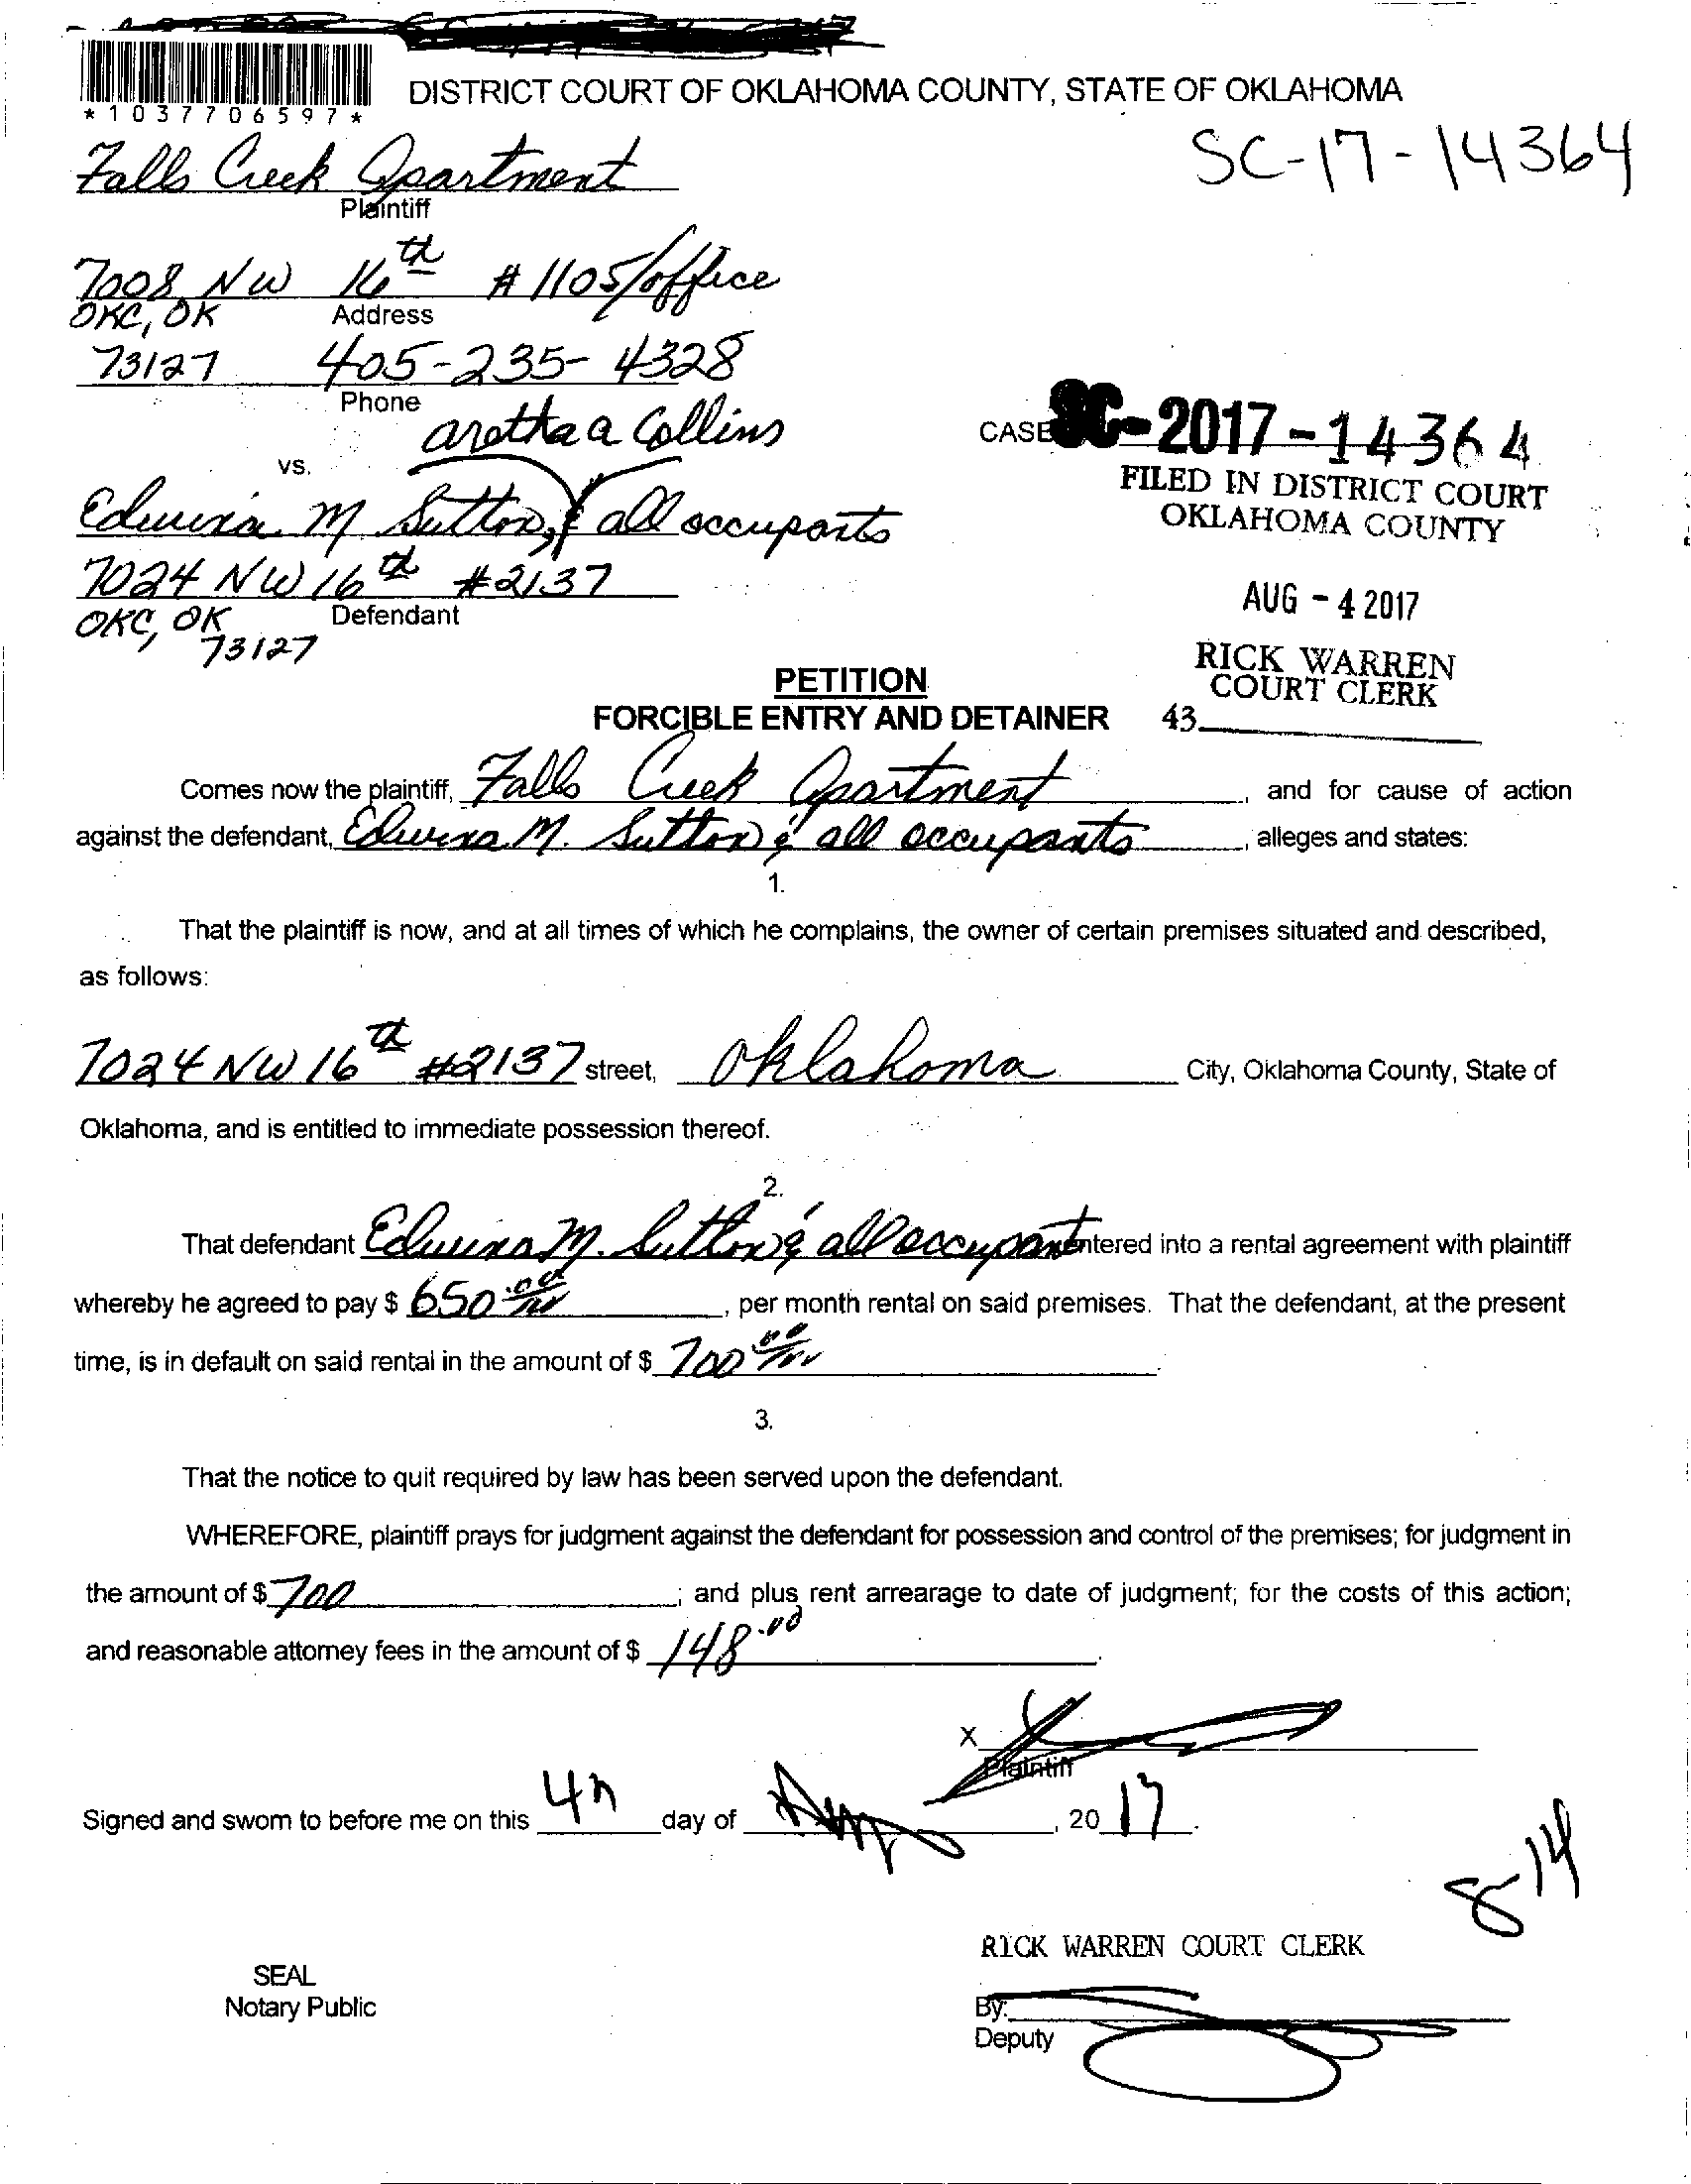 *1037706597*
DISTRICT COURT OF OKLAHOMA COUNTY, STATE OF OKLAHOMA
SC-17-14364
Falls Creek Apartment
Plaintiff
7008 NW 16th #1105/office
OKC, OK
Address
73127 405-235-4328
Phone
aretha a Collins
CASE SC-2017-14364
vs.
FILED IN DISTRICT COURT
OKLAHOMA COUNTY
Edwina M Sutton, & all occupants
7024 NW 16th #2137
AUG - 4 2017
OKC, OK
Defendant
73127
RICK WARREN
COURT CLERK
PETITION
FORCIBLE ENTRY AND DETAINER
43
Comes now the plaintiff, Falls Creek Apartment, and for cause of action
against the defendant, Edwina M. Sutton & all occupants, alleges and states:
1.
That the plaintiff is now, and at all times of which he complains, the owner of certain premises situated and described,
as follows:
7024 NW 16th #2137 street, Oklahoma City, Oklahoma County, State of
Oklahoma, and is entitled to immediate possession thereof.
2.
That defendant Edwina M. Sutton & all occupant entered into a rental agreement with plaintiff
whereby he agreed to pay $ 650.00, per month rental on said premises. That the defendant, at the present
time, is in default on said rental in the amount of $ 700 00.
3.
That the notice to quit required by law has been served upon the defendant.
WHEREFORE, plaintiff prays for judgment against the defendant for possession and control of the premises; for judgment in
the amount of $ 700; and plus rent arrearage to date of judgment; for the costs of this action;
and reasonable attorney fees in the amount of $ 148.00.
X
Plaintiff
Signed and sworn to before me on this 4th day of Aug, 2017.
8-14
RICK WARREN COURT CLERK
SEAL
Notary Public
By:
Deputy